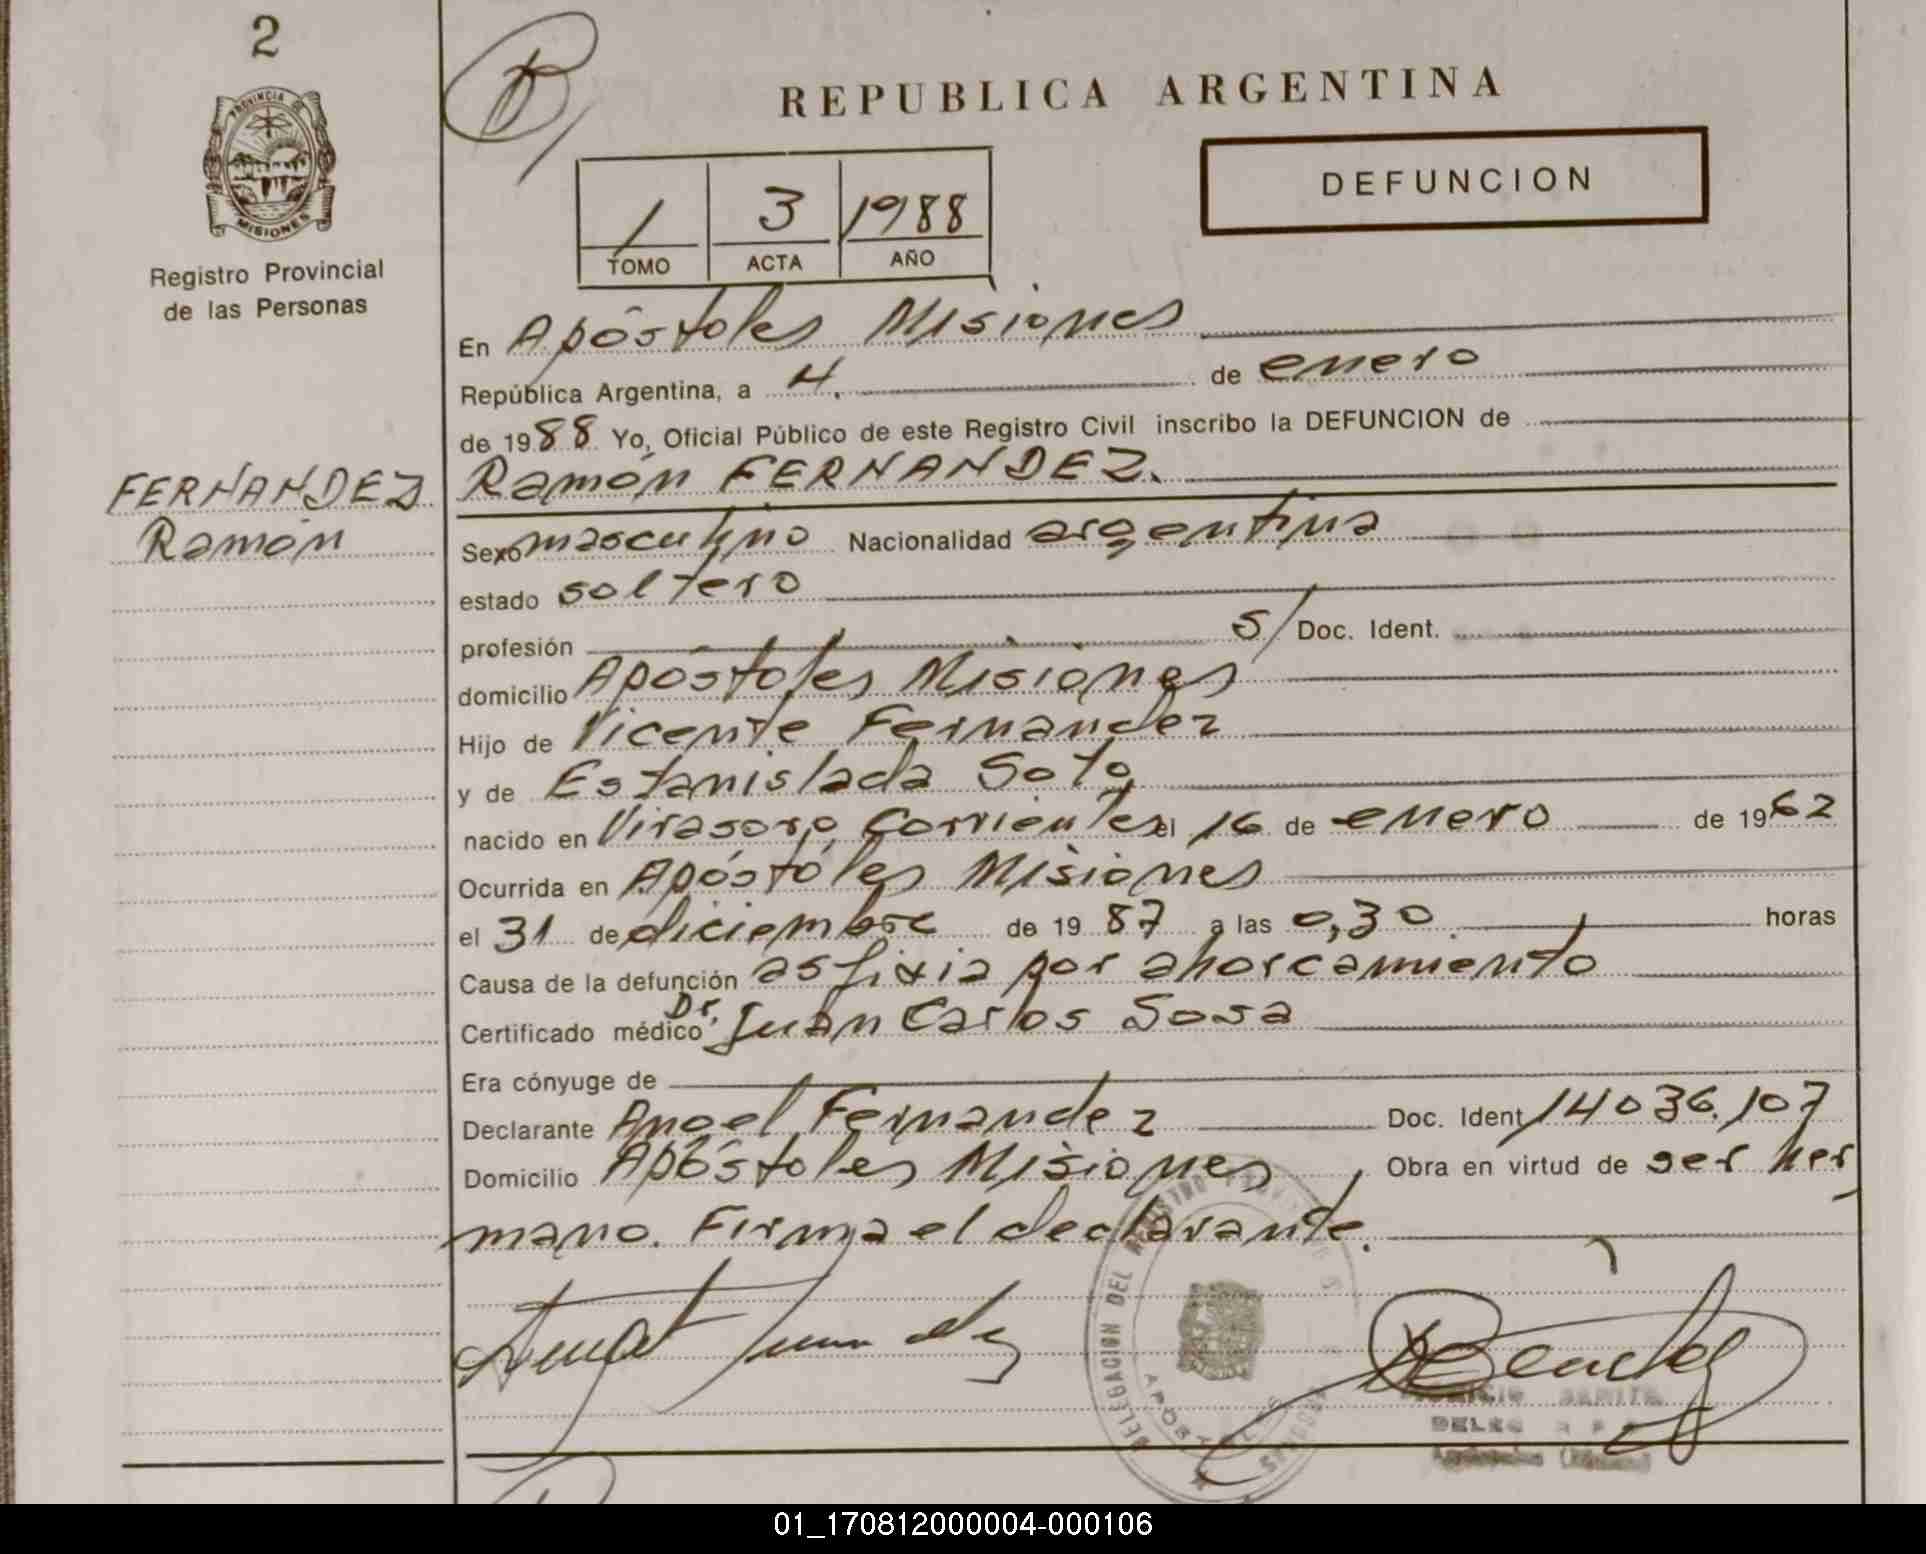 2
PROVINCIA DE
MISIONES
Registro Provincial
de las Personas
FERNANDEZ
Ramón
REPUBLICA ARGENTINA
DEFUNCION
1 3 1988
TOMO ACTA AÑO
En Apóstoles Misiones
República Argentina, a 4. de enero
de 1988 Yo, Oficial Público de este Registro Civil inscribo la DEFUNCION de
Ramón FERNANDEZ.
Sexo masculino Nacionalidad argentina
estado soltero
profesión S/ Doc. Ident.
domicilio Apóstoles Misiones
Hijo de Vicente Fernandez
y de Estanislada Soto
nacido en Virasoro Corrientes el 16 de enero de 1962
Ocurrida en Apóstoles Misiones
el 31 de diciembre de 1987 a las 0,30 horas
Causa de la defunción asfixia por ahorcamiento
Certificado médico Dr. Juan Carlos Sosa
Era cónyuge de
Declarante Angel Fernandez Doc. Ident 14036.107
Domicilio Apóstoles Misiones, Obra en virtud de ser her
mano. Firma el declarante.
DELEGACION DEL
01_170812000004-000106